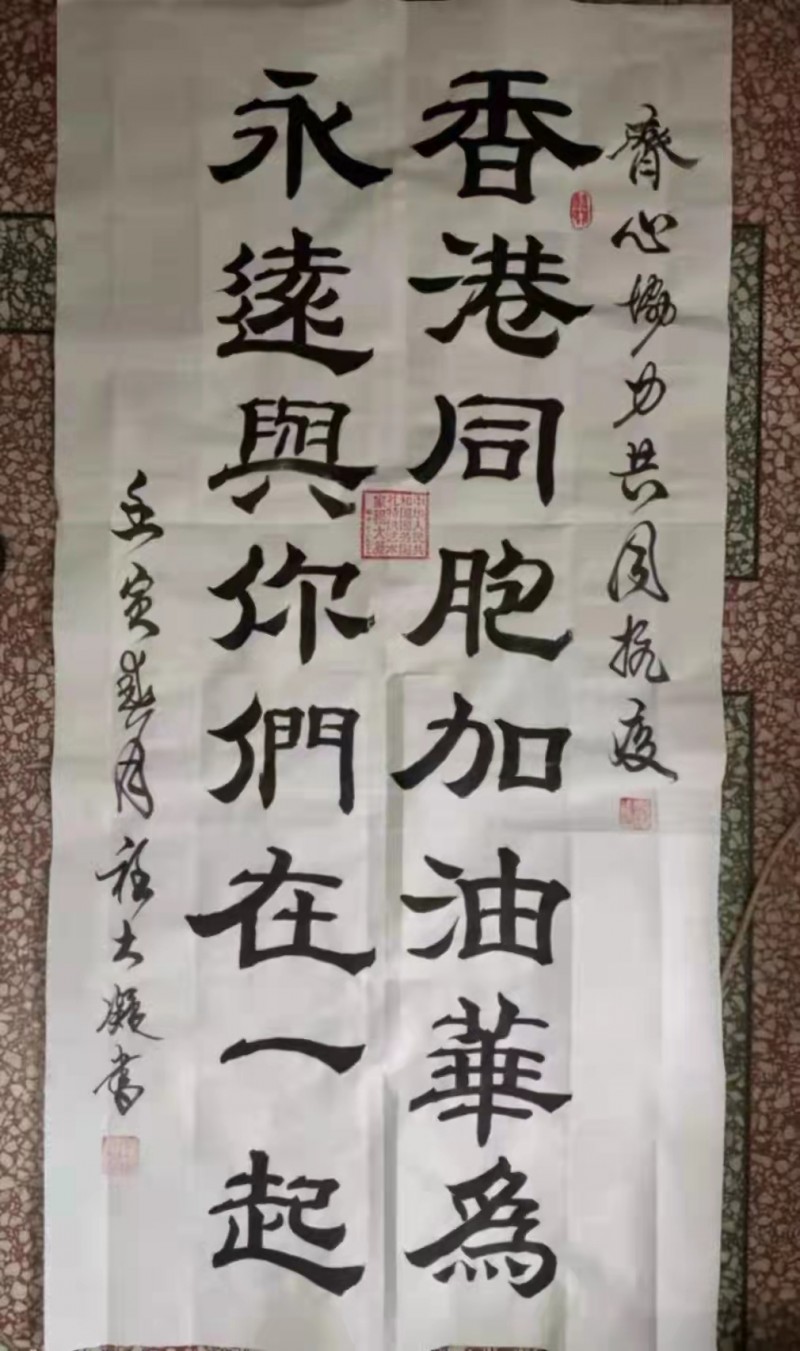 齊心協力共同抗疫
香港同胞加油華為
永遠與你們在一起
壬寅春月程大凝書